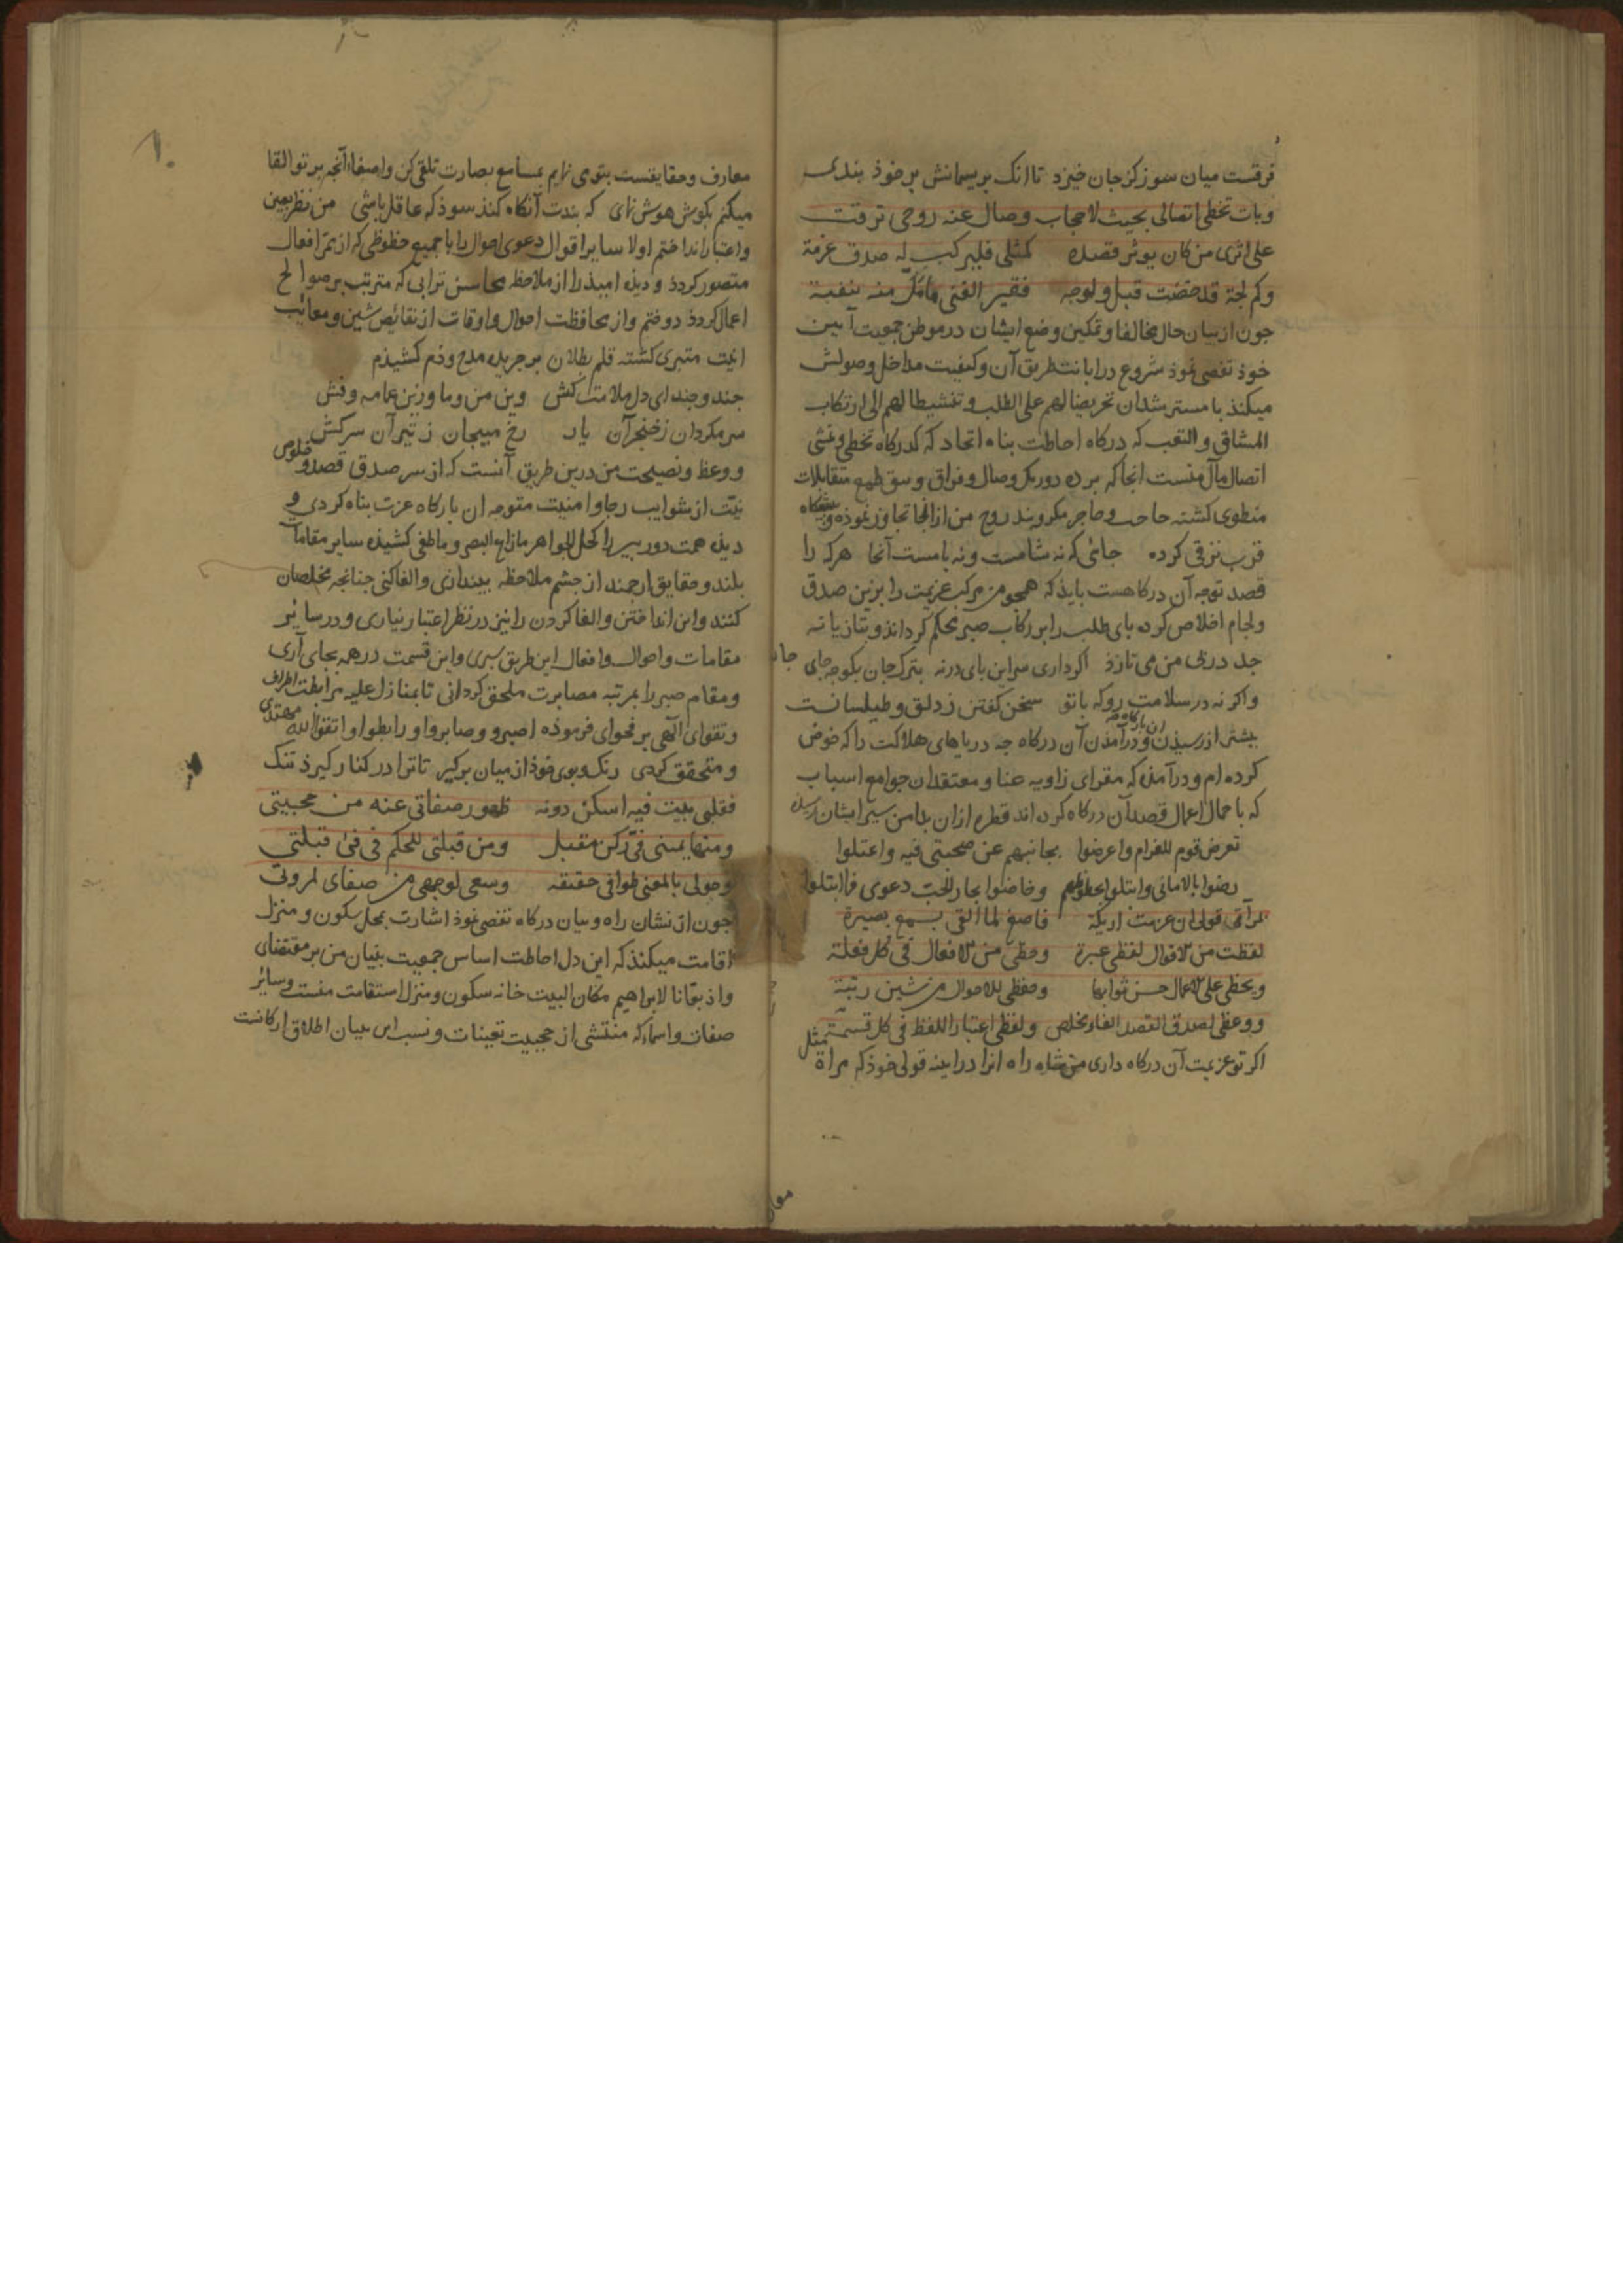 فرقست میان سوز کز جان خیزد تا انک بریسمانش بر خوذ بندی
وبات تخطی اتصالی بحیث لا حجاب وصال عنه روحی ترقت
علی اثری من کان یوثر قصده کمثلی فلیرکب له صدق عزمة
وکم لجة قد خضت قبل ولوجه فقیر الغنی ما بل منه بنغبة
جون از بیان حال مخالفا وتمکین وضع ایشان در موطن جمعیت آیین
خوذ تفصی نموذ شروع در ابانت طریق آن وکیفیت مداخل وصولش
میکنذ با مسترشدان تحریضا لهم علی الطلب وتنشیطا لهم الی ارتکاب
المشاق والتعب که درکاه احاطت بناه اتحاد که کذرکاه تخطی ومشی
اتصال مآل منست انجا که برده دوریک وصال وفراق وسق طبع متقابلات
منطوی کشته حاجب وحاجز مکروبند روح من از انجا تجاوز نموذه وبیشکاه
قرب ترقی کرده جائی که نه شامست ونه بامست آنجا هرکه را
قصد توجه آن درکاهست بایذ که همجو من مرکب عزیمت را بزین صدق
ولجام اخلاص کرده بای طلب را بر رکاب صبر محکم کرداند وبتازیانه
جد در بی من می تازذ اکر داری سر این بای در نه بترک جان بکو جه جای جانست
واکر نه در سلامت رو که با تو سخن کفتن ز دلق وطیلسانست
بیشتر از رسیذن ودرآمدن آن درکاه جه دریاهای هلاکت را که خوض
کرده ام ودرآمذه که فقرای زاویه عنا ومعتقدان جوامع اسباب
که با حمال اعمال قصد آن درکاه کرده اند قطره از ان بدامن سیر ایشان نرسیذه
تعرض قوم للغرام واعرضوا بجانبهم عن صحبتی فیه واعتلوا
رضوا بالامانی وابتلوا بحظوظهم وخاضوا بحار الحب دعوی فما ابتلوا
بمرآة قولی ان عزمت اریکه فاصغ لما القی بسمع بصیرة
لفظت من الاقوال لفظی عبرة وحظی من الافعال فی کل فعلة
ویحظی علی الاعمال حسن ثوابها وحفظی للاحوال من شین ریبة
ووعظی لصدق القصد القاء مخلص ولفظی اعتبار اللفظ فی کل قسمة
اکر تو عزیمت آن درکاه داری من شاه راه انرا در آینه قولی خوذ که مرآة تمثل
معارف وحقایقست بتو می نمایم بمسامع بصارت تلقی کن واصغاء آنجه بر تو القا
میکنم بکوش هوش نمای که بندت آنکاه کنذ سوذ که عاقل باشی من نظر بعین
واعتبار انداختم اولا سایر اقوال دعوی احوال را با جمیع حظوظی که از ثمر افعال
متصور کردذ ودیده امیذ را از ملاحظه محاسن ثوابی که مترتب بر صوالح
اعمال کردذ دوختم واز محافظت احوال واوقات از نقائص شین ومعائب
ریبت متبری کشته قلم بطلان بر جریده مدح وذم کشیذم
جند وجند ای دل ملامت کش وین من وما وزین عمامه وفش
سر مکردان ز خنجر آن یار رخ مپیجان ز تیر آن سرکش
ووعظ ونصیحت من درین طریق آنست که از سر صدق قصد وخلوص
نیت از شوایب رجا وامنیت متوجه ان بارکاه عزت بناه کردی و
دیذه همت دوربین را کحل الجواهر ما زاغ البصر وما طغی کشیذه سایر مقامات
بلند وحقایق ارجمند از جشم ملاحظه بیندازی والقا کنی جنانجه مخلصان
کنند واین انداختن والقا کردن را نیز در نظر اعتبار نیاری ودر سائر
مقامات واحوال وافعال این طریق سپری واین قسمت در همه بجای آری
ومقام صبر را بمرتبه مصابرت ملحق کردانی تا بمنازل علیه مرابطت اطراف
وتقوای الهی بر فحوای فرموذه اصبروا وصابروا ورابطوا واتقوا الله مهتدی
ومتحقق کردی رنک وبوی خوذ از میان برکیر تا ترا در کنار کیرذ تنک
فقلبی بیت فیه اسکن دونه ظهور صفاتی عنه من حجبیتی
ومنها یمینی فی رکن مقبل ومن قبلتی للحکم فی فی قبلتی
وحولی بالمعنی طوافی حقیقة وسعی لوجهی من صفای لمروتی
جون از نشان راه وبیان درکاه تفصی نموذ اشارت بمحل سکون ومنزل
اقامت میکنذ که این دل احاطت اساس جمعیت بنیان من بر مقتضای
واذ بوّأنا لابراهیم مکان البیت خانه سکون ومنزل استقامت منست وسائر
صفات واسماء که منتشی از حجبیت تعینات ونسب این بنیان اطلاق ارکانست